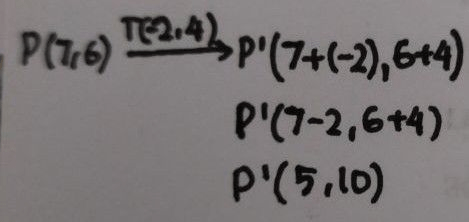 P(7,6) T(-2,4) → P'(7+(-2),6+4)
P'(7-2,6+4)
P'(5,10)